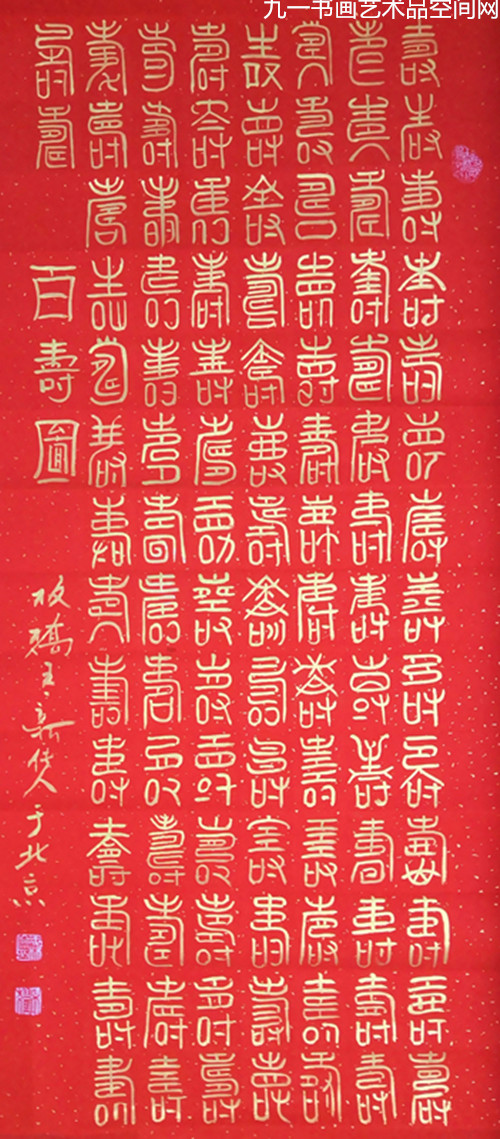 九一书画艺术品空间网
壽壽壽壽壽壽壽壽壽壽壽壽壽壽
壽壽壽壽壽壽壽壽壽壽壽壽壽壽
壽壽壽壽壽壽壽壽壽壽壽壽壽壽
壽壽壽壽壽壽壽壽壽壽壽壽壽壽
壽壽壽壽壽壽壽壽壽壽壽壽壽壽
壽壽壽壽壽壽壽壽壽壽壽壽壽壽
壽壽壽壽壽壽壽壽壽壽壽壽壽壽
壽壽
百壽圖
板橋 人于北京